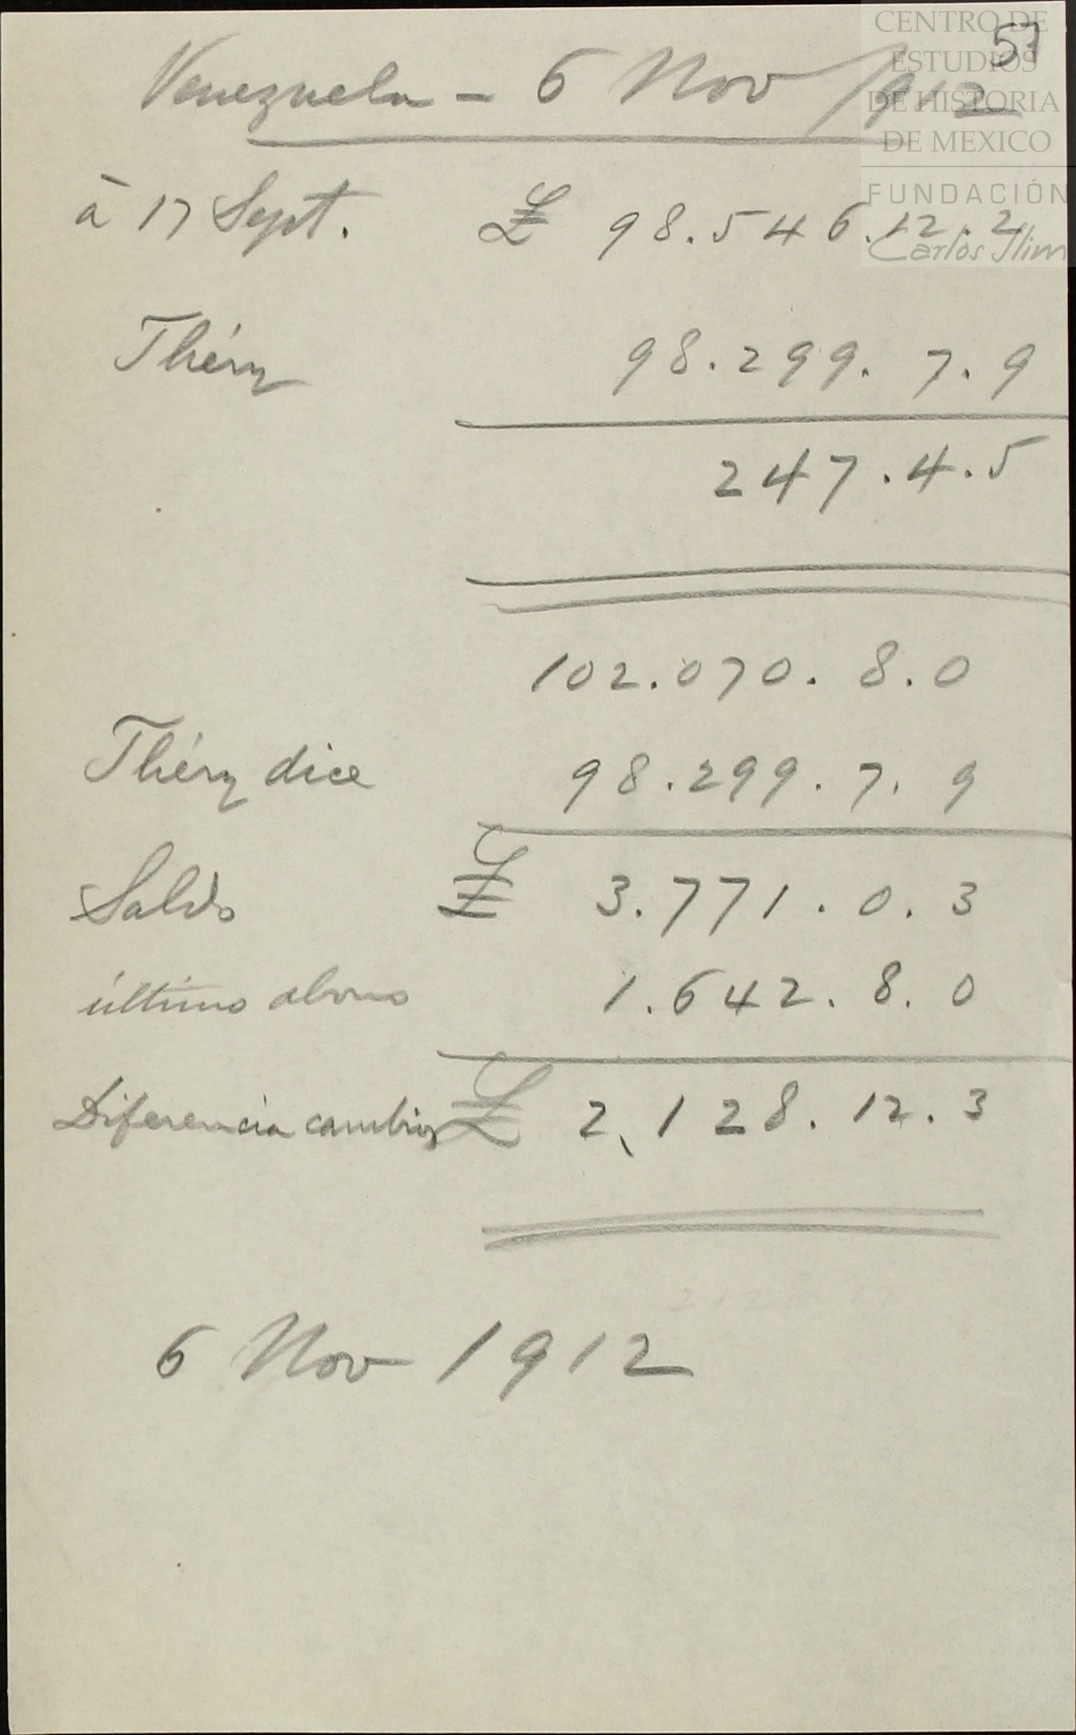 57
Venezuela - 6 Nov 1912
CENTRO DE
ESTUDIOS
DE HISTORIA
DE MEXICO
FUNDACIÓN
Carlos Slim
à 17 Sept. £ 98.546.12.2
Théry 98.299.7.9
247.4.5
102.070.8.0
Théry dice 98.299.7.9
Saldo £ 3.771.0.3
último abono 1.642.8.0
Diferencia cambios £ 2,128.12.3
6 Nov 1912